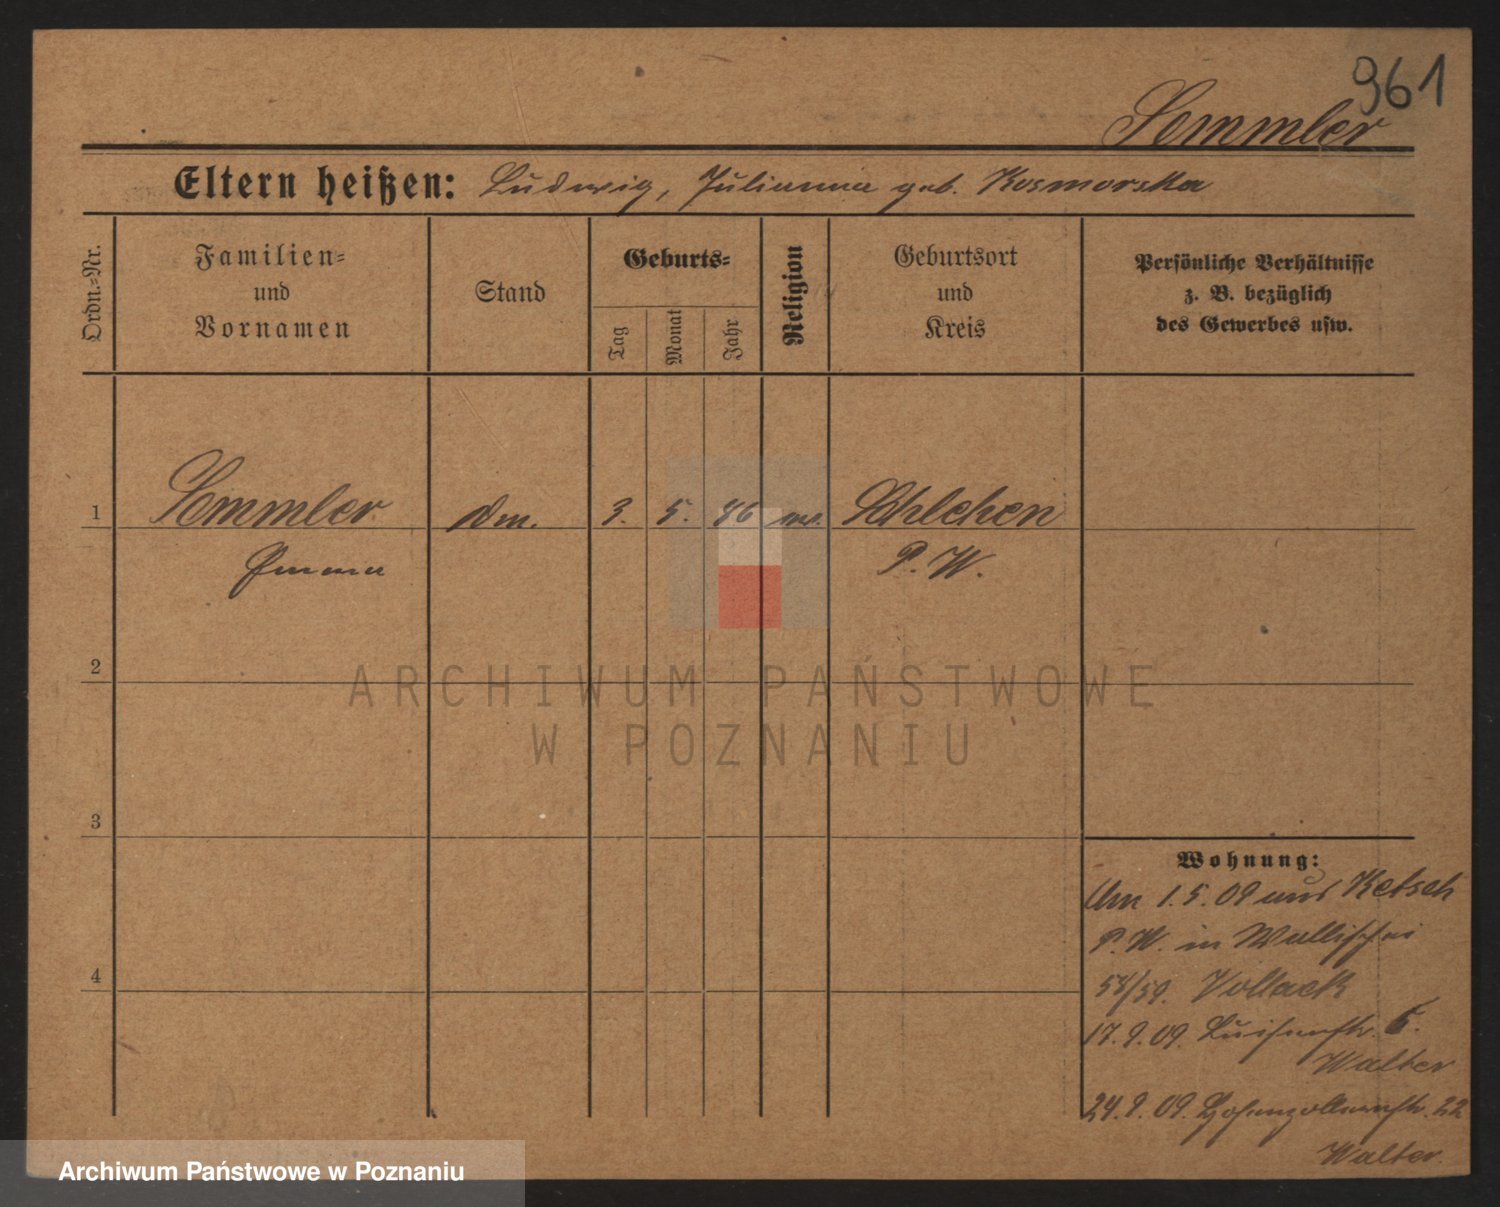 961
Semmler
Eltern heißen: Ludwig, Julianna geb. Kosmorska
Ordn.-Nr.
Familien-
und
Vornamen
Stand
Geburts-
Tag
Monat
Jahr
Religion
Geburtsort
und
Kreis
Persönliche Verhältnisse
z. B. bezüglich
des Gewerbes usw.
1
Semmler
Emma
3. 5.
Schlehen
P. W.
2
ARCHIWUM PAŃSTWOWE
W POZNANIU
3
4
Wohnung:
Am 1.5.09 aus Ketsch
P. W. in Wallischei
58/59. Vollack
17.9.09. Luisenstr. 6.
Walter
24.9.09. Hohenzollernstr. 22
Walter.
Archiwum Państwowe w Poznaniu